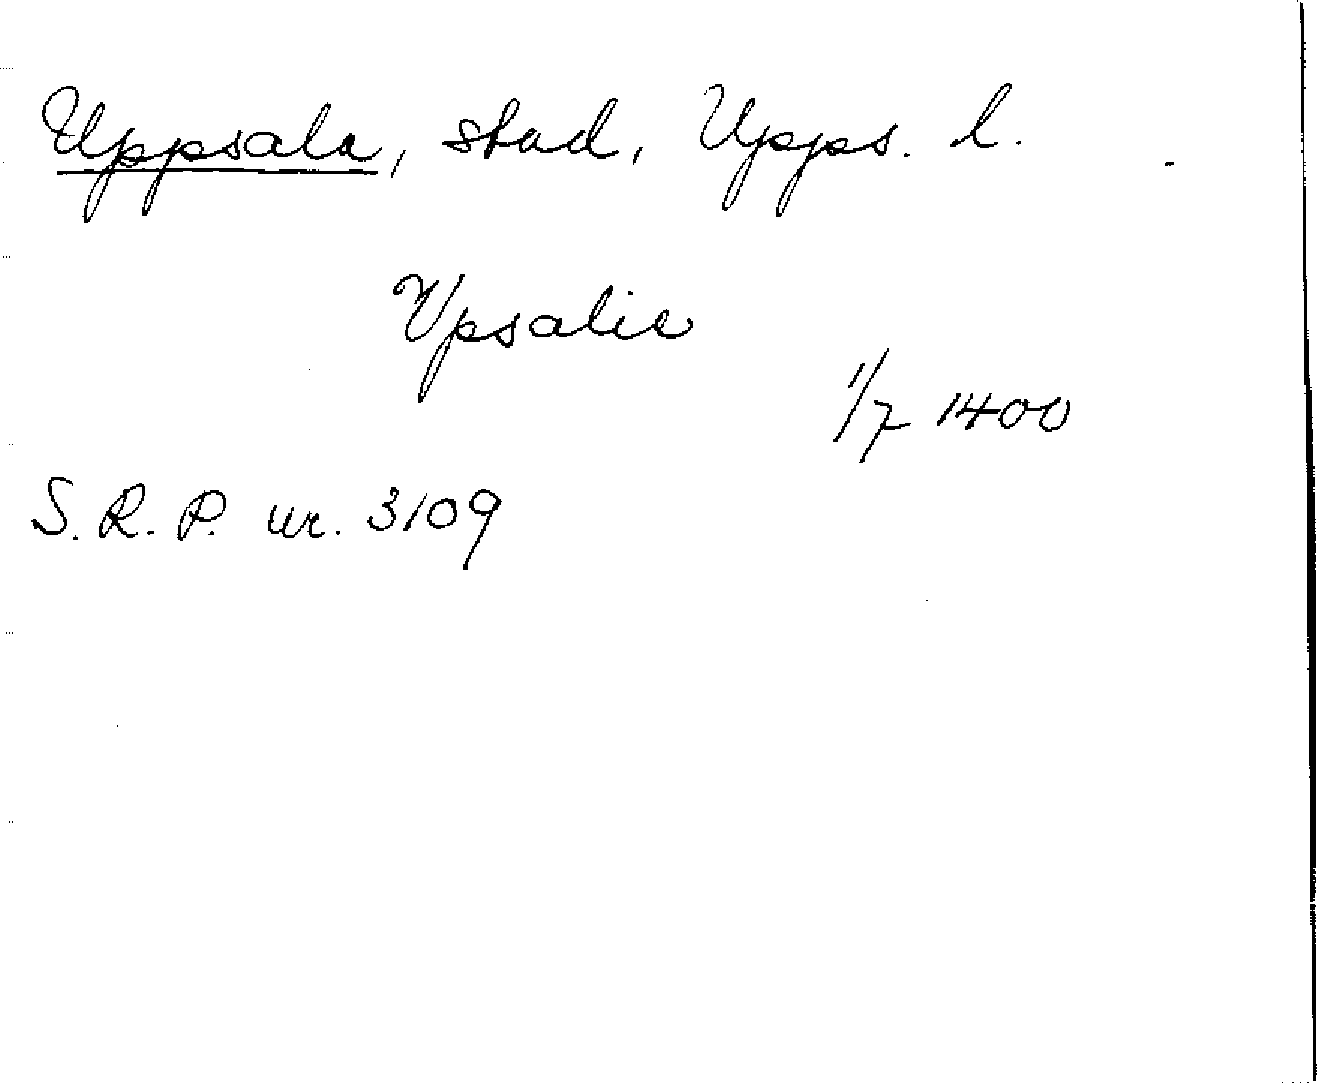 Uppsala, stad, Upps. l.
Vpsalie
1/7 1400
S.R.P. nr. 3109